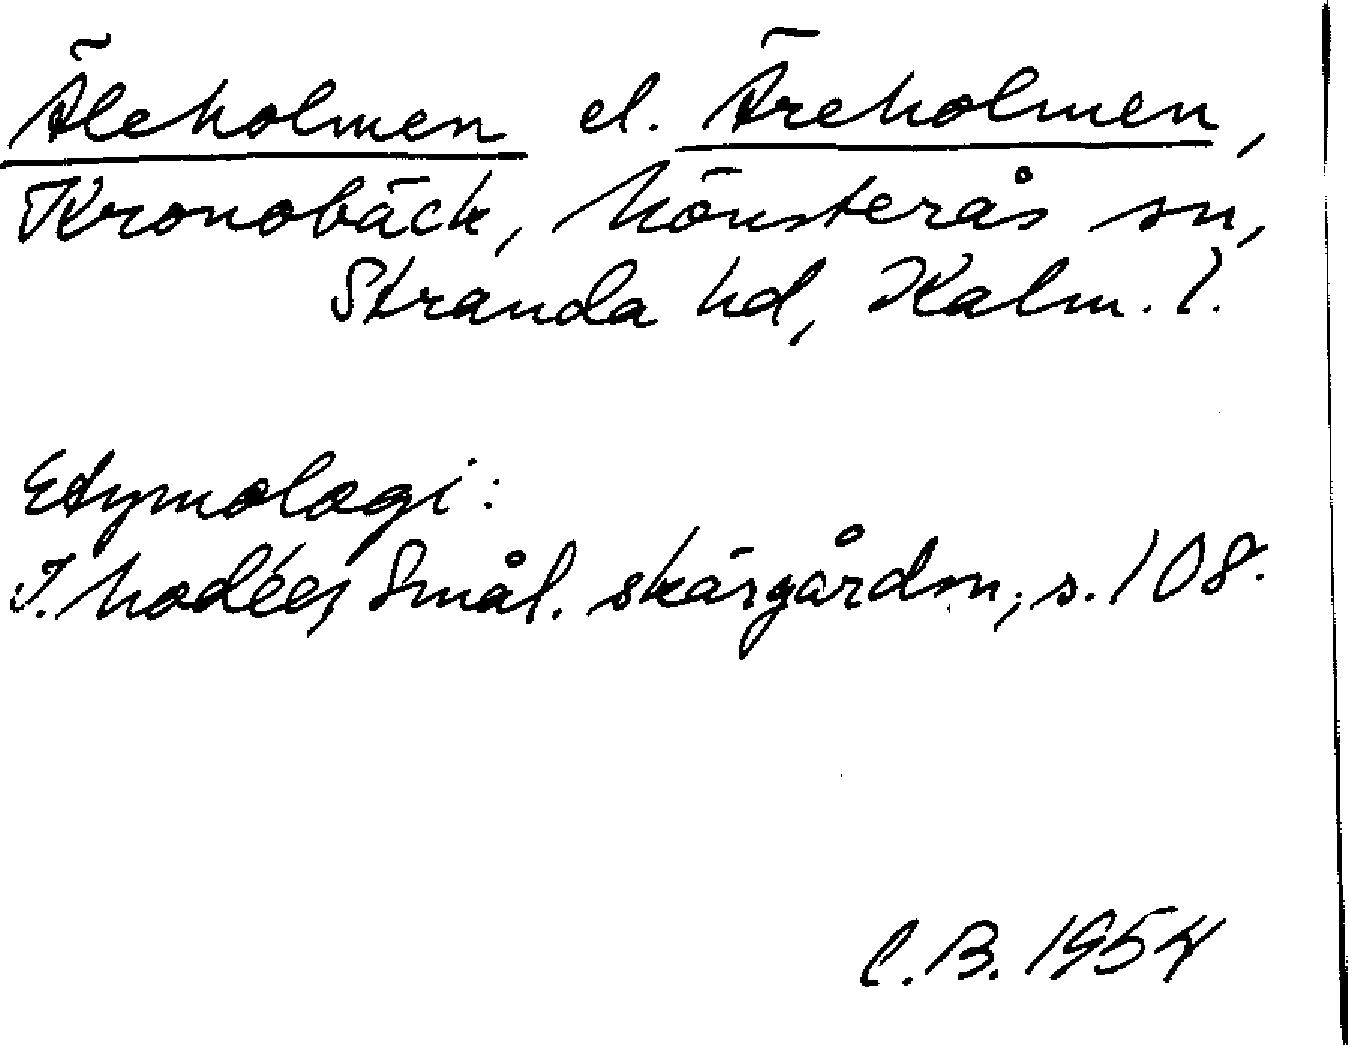 Äleholmen el. Äreholmen,
Kronobäck, Mönsterås sn,
Stranda hd, Kalm. l.
Etymologi:
I. Modéer, Smål. skärgårdsn., s. 108.
C. B. 1954